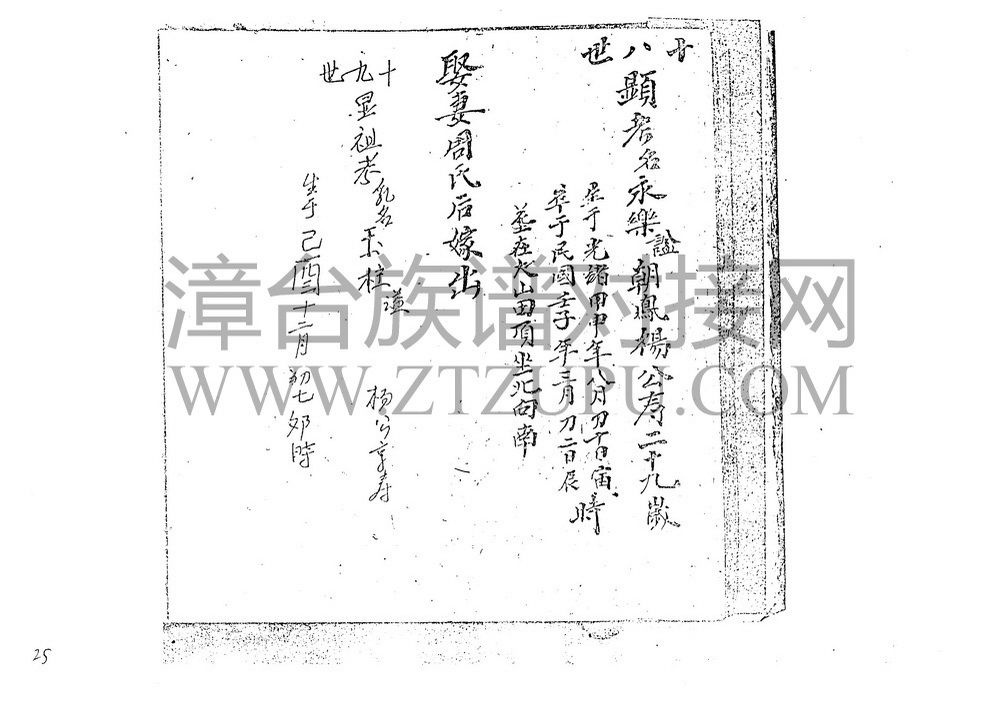 十八世
顕考名永樂謚朝鳳楊公寿二十九歲
生于光緒甲申年八月初一日寅時
卒于民國壬子年三月初二日辰時
葬在火山田頂坐北向南
娶妻周氏后嫁出
十九世
显祖考乳名玉柱謚 杨公享寿
生于己酉十二月初七卯時
漳台族谱对接网
WWW.ZTZUPU.COM
25